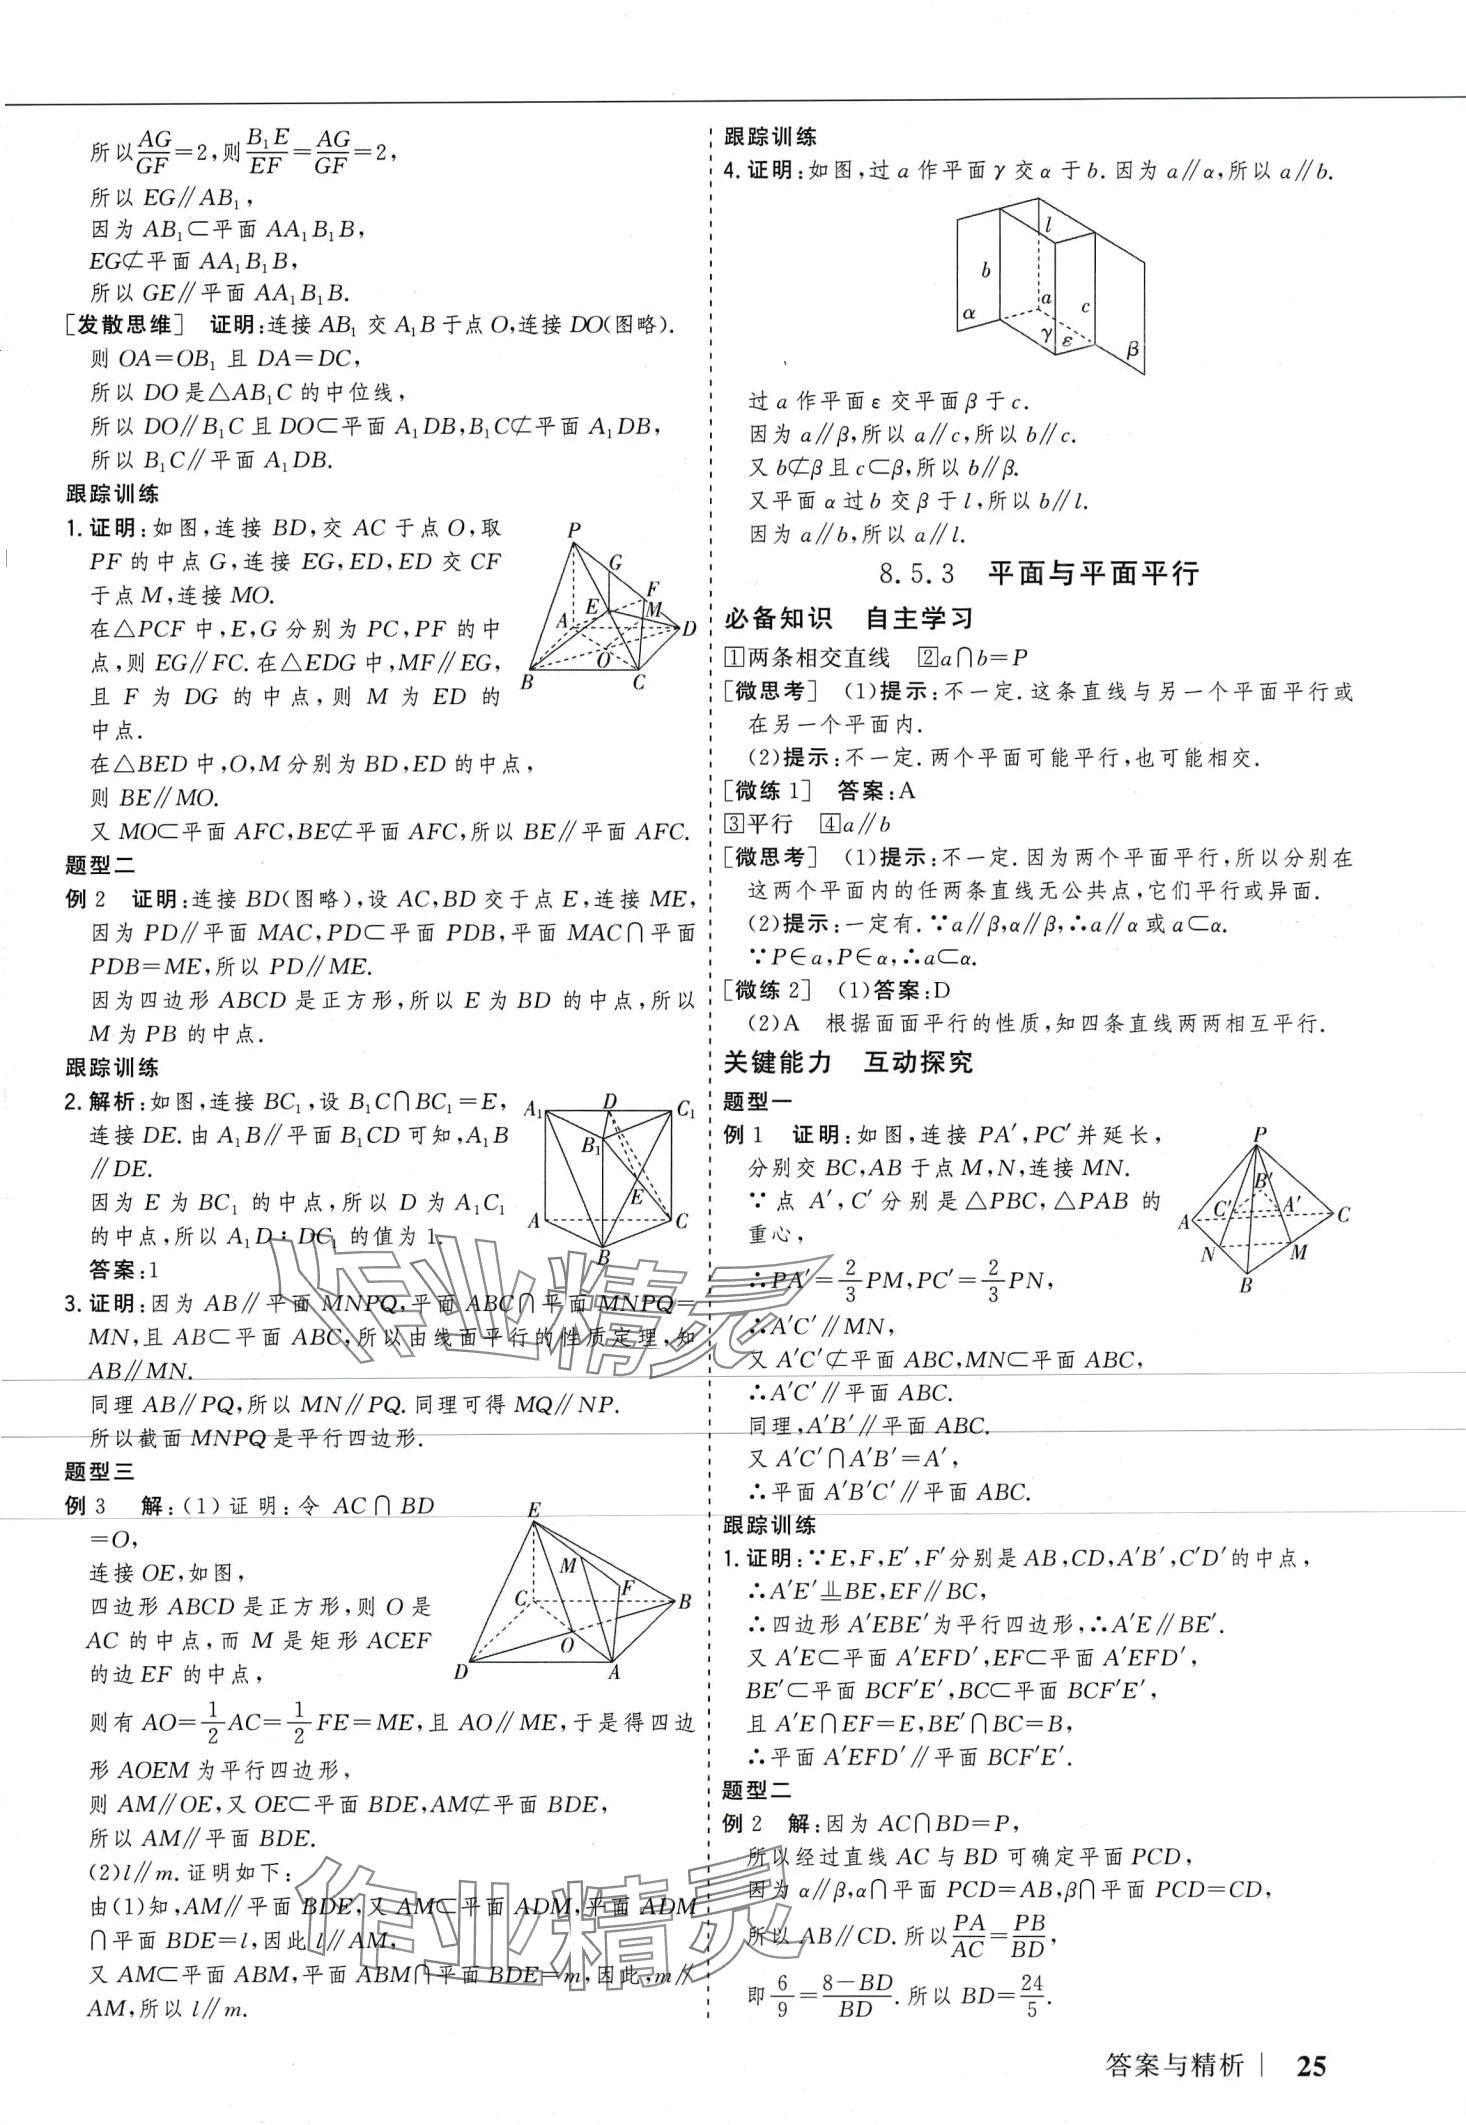 所以AG/GF=2,则B₁E/EF=AG/GF=2,
所以 EG∥AB₁,
因为 AB₁⊂平面 AA₁B₁B,
EG⊄平面 AA₁B₁B,
所以 GE∥平面 AA₁B₁B.
[发散思维] 证明:连接 AB₁ 交 A₁B 于点 O,连接 DO(图略).
则 OA=OB₁ 且 DA=DC,
所以 DO 是△AB₁C 的中位线,
所以 DO∥B₁C 且 DO⊂平面 A₁DB,B₁C⊄平面 A₁DB,
所以 B₁C∥平面 A₁DB.
跟踪训练
1.证明:如图,连接 BD,交 AC 于点 O,取
PF 的中点 G,连接 EG,ED,ED 交 CF
于点 M,连接 MO.
在△PCF 中,E,G 分别为 PC,PF 的中
点,则 EG∥FC.在△EDG 中,MF∥EG,
且 F 为 DG 的中点,则 M 为 ED 的
中点.
在△BED 中,O,M 分别为 BD,ED 的中点,
则 BE∥MO.
又 MO⊂平面 AFC,BE⊄平面 AFC,所以 BE∥平面 AFC.
P
G
F
E
M
A
D
O
B
C
题型二
例 2 证明:连接 BD(图略),设 AC,BD 交于点 E,连接 ME,
因为 PD∥平面 MAC,PD⊂平面 PDB,平面 MAC∩平面
PDB=ME,所以 PD∥ME.
因为四边形 ABCD 是正方形,所以 E 为 BD 的中点,所以
M 为 PB 的中点.
跟踪训练
2.解析:如图,连接 BC₁,设 B₁C∩BC₁=E,
连接 DE.由 A₁B∥平面 B₁CD 可知,A₁B
∥DE.
因为 E 为 BC₁ 的中点,所以 D 为 A₁C₁
的中点,所以 A₁D∶DC₁ 的值为 1.
答案:1
A₁
D
C₁
B₁
E
A
C
B
3.证明:因为 AB∥平面 MNPQ,平面 ABC∩平面 MNPQ=
MN,且 AB⊂平面 ABC,所以由线面平行的性质定理,知
AB∥MN.
同理 AB∥PQ,所以 MN∥PQ.同理可得 MQ∥NP.
所以截面 MNPQ 是平行四边形.
题型三
例 3 解:(1)证明:令 AC∩BD
=O,
连接 OE,如图,
四边形 ABCD 是正方形,则 O 是
AC 的中点,而 M 是矩形 ACEF
的边 EF 的中点,
E
M
F
C
B
O
D
A
则有 AO=1/2AC=1/2FE=ME,且 AO∥ME,于是得四边
形 AOEM 为平行四边形,
则 AM∥OE,又 OE⊂平面 BDE,AM⊄平面 BDE,
所以 AM∥平面 BDE.
(2)l∥m.证明如下:
由(1)知,AM∥平面 BDE,又 AM⊂平面 ADM,平面 ADM
∩平面 BDE=l,因此 l∥AM,
又 AM⊂平面 ABM,平面 ABM∩平面 BDE=m,因此,m∥
AM,所以 l∥m.
跟踪训练
4.证明:如图,过 a 作平面 γ 交 α 于 b.因为 a∥α,所以 a∥b.
l
b
a
c
α
γ
ε
β
过 a 作平面 ε 交平面 β 于 c.
因为 a∥β,所以 a∥c,所以 b∥c.
又 b⊄β 且 c⊂β,所以 b∥β.
又平面 α 过 b 交 β 于 l,所以 b∥l.
因为 a∥b,所以 a∥l.
8.5.3 平面与平面平行
必备知识 自主学习
1两条相交直线 2a∩b=P
[微思考] (1)提示:不一定.这条直线与另一个平面平行或
在另一个平面内.
(2)提示:不一定.两个平面可能平行,也可能相交.
[微练 1] 答案:A
3平行 4a∥b
[微思考] (1)提示:不一定.因为两个平面平行,所以分别在
这两个平面内的任两条直线无公共点,它们平行或异面.
(2)提示:一定有.∵a∥β,α∥β,∴a∥α或a⊂α.
∵P∈a,P∈α,∴a⊂α.
[微练 2] (1)答案:D
(2)A 根据面面平行的性质,知四条直线两两相互平行.
关键能力 互动探究
题型一
例 1 证明:如图,连接 PA′,PC′并延长,
分别交 BC,AB 于点 M,N,连接 MN.
∵点 A′,C′分别是△PBC,△PAB 的
重心,
∴PA′=2/3PM,PC′=2/3PN,
P
B′
C′
A′
A
C
N
M
B
∴A′C′∥MN,
又 A′C′⊄平面 ABC,MN⊂平面 ABC,
∴A′C′∥平面 ABC.
同理,A′B′∥平面 ABC.
又 A′C′∩A′B′=A′,
∴平面 A′B′C′∥平面 ABC.
跟踪训练
1.证明:∵E,F,E′,F′分别是 AB,CD,A′B′,C′D′的中点,
∴A′E′⫫BE,EF∥BC,
∴四边形 A′EBE′为平行四边形,∴A′E∥BE′.
又 A′E⊂平面 A′EFD′,EF⊂平面 A′EFD′,
BE′⊂平面 BCF′E′,BC⊂平面 BCF′E′,
且 A′E∩EF=E,BE′∩BC=B,
∴平面 A′EFD′∥平面 BCF′E′.
题型二
例 2 解:因为 AC∩BD=P,
所以经过直线 AC 与 BD 可确定平面 PCD,
因为 α∥β,α∩平面 PCD=AB,β∩平面 PCD=CD,
所以 AB∥CD.所以PA/AC=PB/BD,
即 6/9=8-BD/BD.所以 BD=24/5.
作业精灵
作业精灵
答案与精析 | 25